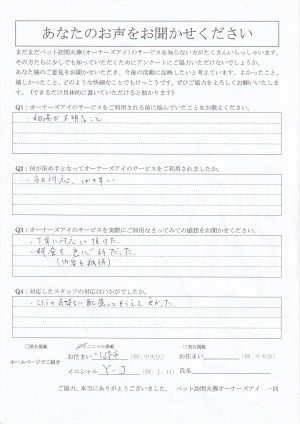 あなたのお声をお聞かせください
まだまだペット訪問火葬(オーナーズアイ)のサービスを知らない方がたくさんいらっしゃいます。
その方たちに少しでも知っていただくためにアンケートにご協力いただけないでしょうか。
あなた様のご意見をお聞かせいただき、今後の活動に反映したいと考えています。よかったこと、
嬉しかったこと、どのような些細なことでもけっこうです。ぜひご協力をよろしくお願いいたしま
す。(できるだけ具体的に書いていただけると助かります)
Q1:オーナーズアイのサービスをご利用される前に悩んでいたことをお教えください。
・相場が不明なこと
Q2:何が決め手となってオーナーズアイのサービスをご利用されましたか。
・当日対応、
Q3:オーナーズアイのサービスを実際にご利用なさってみての感想をお聞かせください。
・丁寧に対応して頂けた
・料金も良心的だった
Q4:対応したスタッフの対応はいかがでしたか。
・こちらの気持ちに配慮してもらえて良かった
□匿名掲載
イニシャル掲載
□実名掲載
ホームページでご紹介
お住まい
(例:中央区)
お住まい
(例:中央区)
イニシャル Y-J (例:J.H)
氏名
ご協力、本当にありがとうございました。 ペット訪問火葬オーナーズアイ 一同